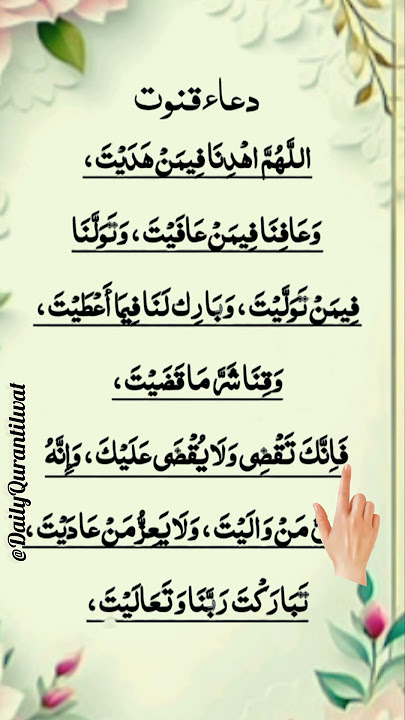 دعاء قنوت
اللَّهُمَّ اهْدِنَا فِيمَنْ هَدَيْتَ،
وَعَافِنَا فِيمَنْ عَافَيْتَ، وَتَوَلَّنَا
فِيمَنْ تَوَلَّيْتَ، وَبَارِك لَنَا فِيمَا أَعْطَيْتَ،
وَقِنَا شَرَّ مَا قَضَيْتَ،
فَإِنَّكَ تَقْضِى وَلَا يُقْضَى عَلَيْكَ، وَإِنَّهُ
مَنْ وَالَيْتَ، وَلَا يَعِزُّ مَنْ عَادَيْتَ،
تَبَارَكْتَ رَبَّنَا وَتَعَالَيْتَ،
@DailyQurantilwat